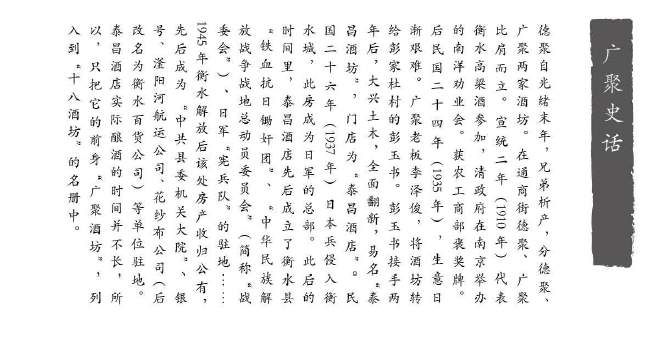 广聚史话
德聚自光绪末年，兄弟析产，分德聚、
广聚两家酒坊。在通商街德聚、广聚
比肩而立。宣统二年（1910年）代表
衡水高粱酒参加，清政府在南京举办
的南洋劝业会。获农工商部褒奖牌。
后民国二十四年（1935年），生意日
渐艰难。广聚老板李泽俊，将酒坊转
给彭家杜村的彭玉书。彭玉书接手两
年后，大兴土木，全面翻新，易名“泰
昌酒坊”，门店为“泰昌酒店”。民
国二十六年（1937年）日本兵侵入衡
水城，此房成为日军的总部。此后的
时间里，泰昌酒店先后成立了衡水县
“铁血抗日锄奸团”、“中华民族解
放战争战地总动员委员会”（简称“战
委会”）、日军“宪兵队”的驻地……
1945年衡水解放后该处房产收归公有，
先后成为“中共县委机关大院”、银
号、滏阳河航运公司、花纱布公司（后
改名为衡水百货公司）等单位驻地。
泰昌酒店实际酿酒的时间并不长，所
以，只把它的前身“广聚酒坊”，列
入到“十八酒坊”的名册中。